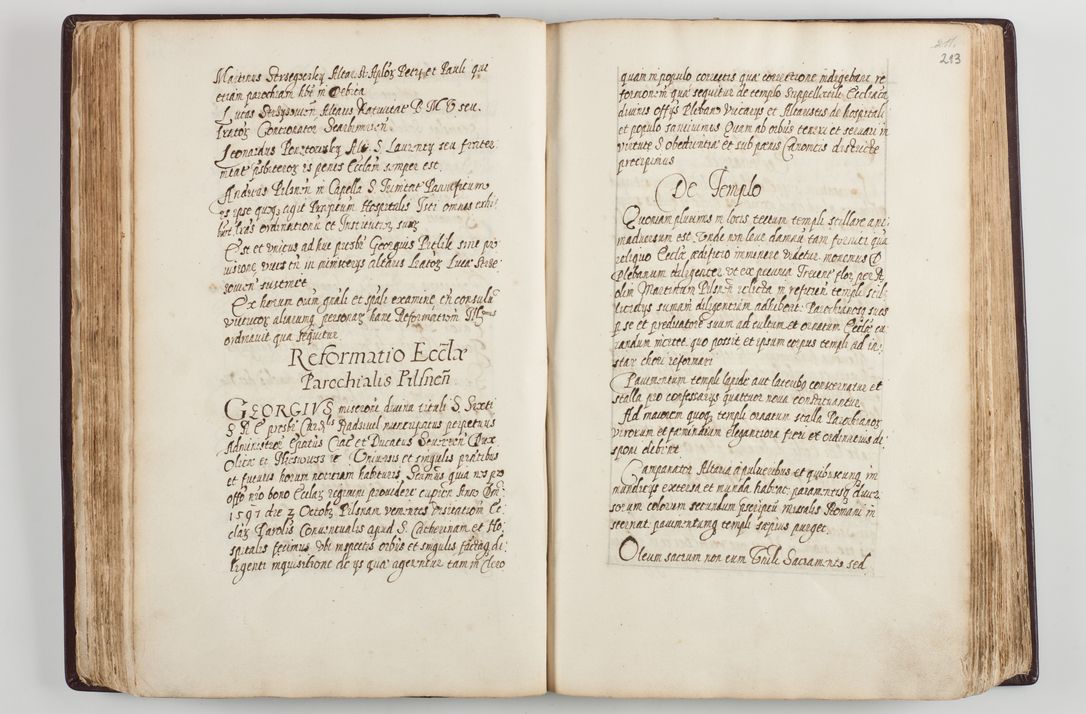 Martinus Altar. St. Aplor Petri et Pauli qui
etiam parochiam hbt in Debica
Lucas Altaris Natiuitat B. M. V. seu
Contionator
Leonardus Altr. S. Laurentÿ seu frater
nitat psbiteror is penes Ecclam semper est
Andreas Pilsnen in Capella S. Trinitat Pannificum
es ipse quoq agit Hospitalis Isti omnes exhi
buer. lras ordinationu et Institutiou suar
Est et unicus adhuc presbr Georgius sine pro
uisione, uices tn in ministerÿs altaris Lucæ
sustinet
Ex horum oium gnali et spali examine en
aliarumq personaz hanc Reformatiom
ordinauit quæ sequitur
Reformatio Ecclæ
Parochialis Pilsnen
GEORGIVS miseratne diuina tituli S. Sixti
S R E presbr Carlis Radziuil nuncupatus perpetuus
Administror Epatus Crac et Ducatus Seueren Dux
Olicæ et Niesuissis etc Vniuersis et singulis pntibus
et futuris horum notitiam habituris. Scimus quia nos pro
offo nro bono Ecclaz regimini prouidere cupien Anno Dni
1597 die 2 Octobr Pilsnam venientes visitatiom Ec
claz Parolis Conuentualis apud S. Catherinam et Ho
spitalis fecimus ubi inspectis orbus et singulis factaq di
ligenti inquisitione de ys quæ agerentur tam in Clero
213
quam in populo correctis quæ correctione indigebant re
formonem quæ sequitur de templo Suppellectile Ecclica
diuinis offÿs Plebano Vicarÿs et Altaristis de hospitali
et populo sanciuimus Quam ab oibus teneri et seruari in
virtute S. obedientiæ et sub pænis Canonicis districte
precipimus
De Templo
Quoniam pluuias in locis tectum templi stillare ani
maduersum est Vnde non leue damnu tam fornici quā
reliquo Ecclæ ædificio imminere videtur monemus D
Plebanum diligenter vt ex pecunia Trecent flor per
olim Martinum Pilsnen relicta in reficien templi
summam diligentiam adhibeat Parochianosq suos
p se et predicatore suum ad cultum et ornatum Ecclæ cu
randum incitet quo possit et ipsum corpus templi ad in
star chori reformari
Pauimentum templi lapide aut lateribo consternatur et
stalla pro confessarÿs quatuor noua constituantur
Ad maiorem quoq templi ornatum stalla Parochianor
virorum et fæminarum elegantiora fieri et ordinatius di
sponi debent
Campanator Altaria a pulueribus et quibuscunq im
mundicÿs extersa et munda habeat: paramentisq diuer
sorum colorum secundum præscriptu missalis Romani in
sternat pauimentumq templi sæpius purget
Oleum sacrum non cum Vnli Sacramento sed